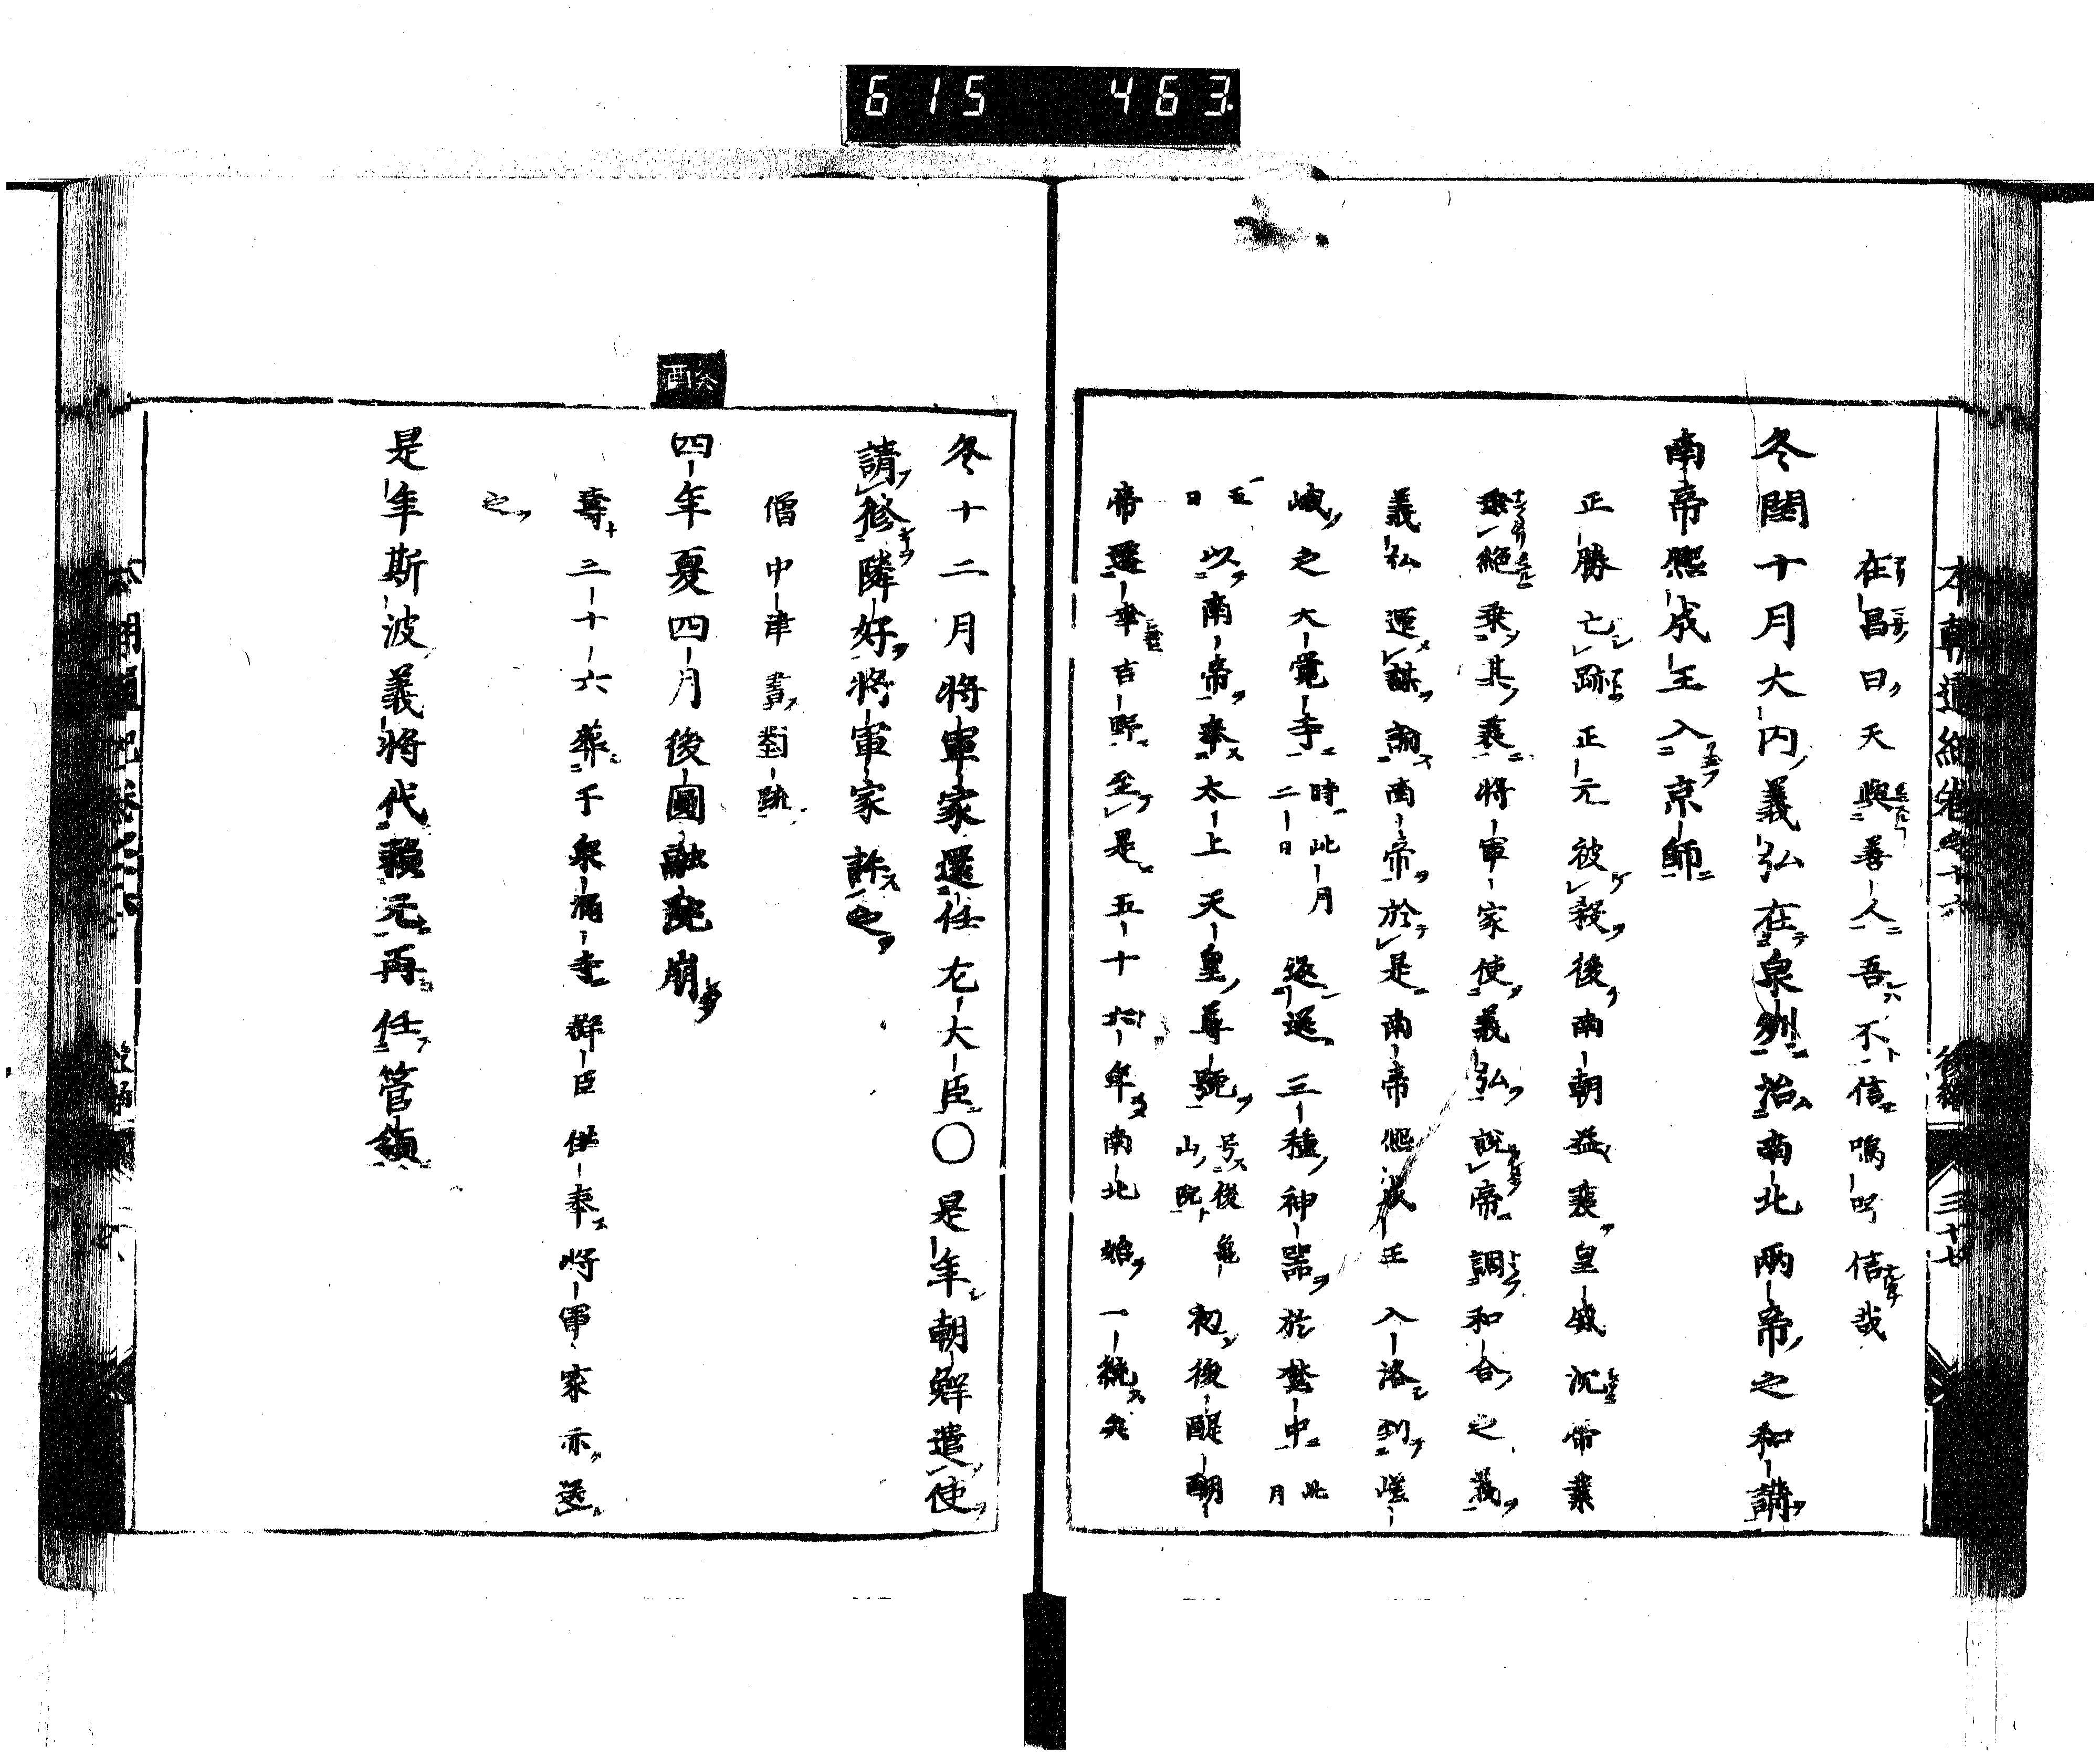 615 463
本朝通紀卷之十六 後編 三十七
在昌曰天與善人吾不信嗚呼信哉
冬閏十月大內義弘在泉州治南北兩帝之和講
南帝熙成王入京師
正勝亡跡正元被殺後南朝益衰皇威沉帝業
垂絕乘其衰將軍家使義弘說帝調和合之義
義弘運謀諭南帝於是南帝熙成王入洛到嵯
峨之大覺寺時此月二日返還三種神器於禁中此月
五日以南帝奉太上天皇尊號号後龜山院初後醍醐
帝遷幸吉野至是五十六年南北始一統矣
冬十二月將軍家還任左大臣〇是年朝鮮遣使
請修隣好將軍家許之
僧中津書對疏
癸酉
四年夏四月後圓融院崩
壽三十六葬于泉涌寺群臣供奉將軍家亦送
之
是年斯波義將代賴元再任管領